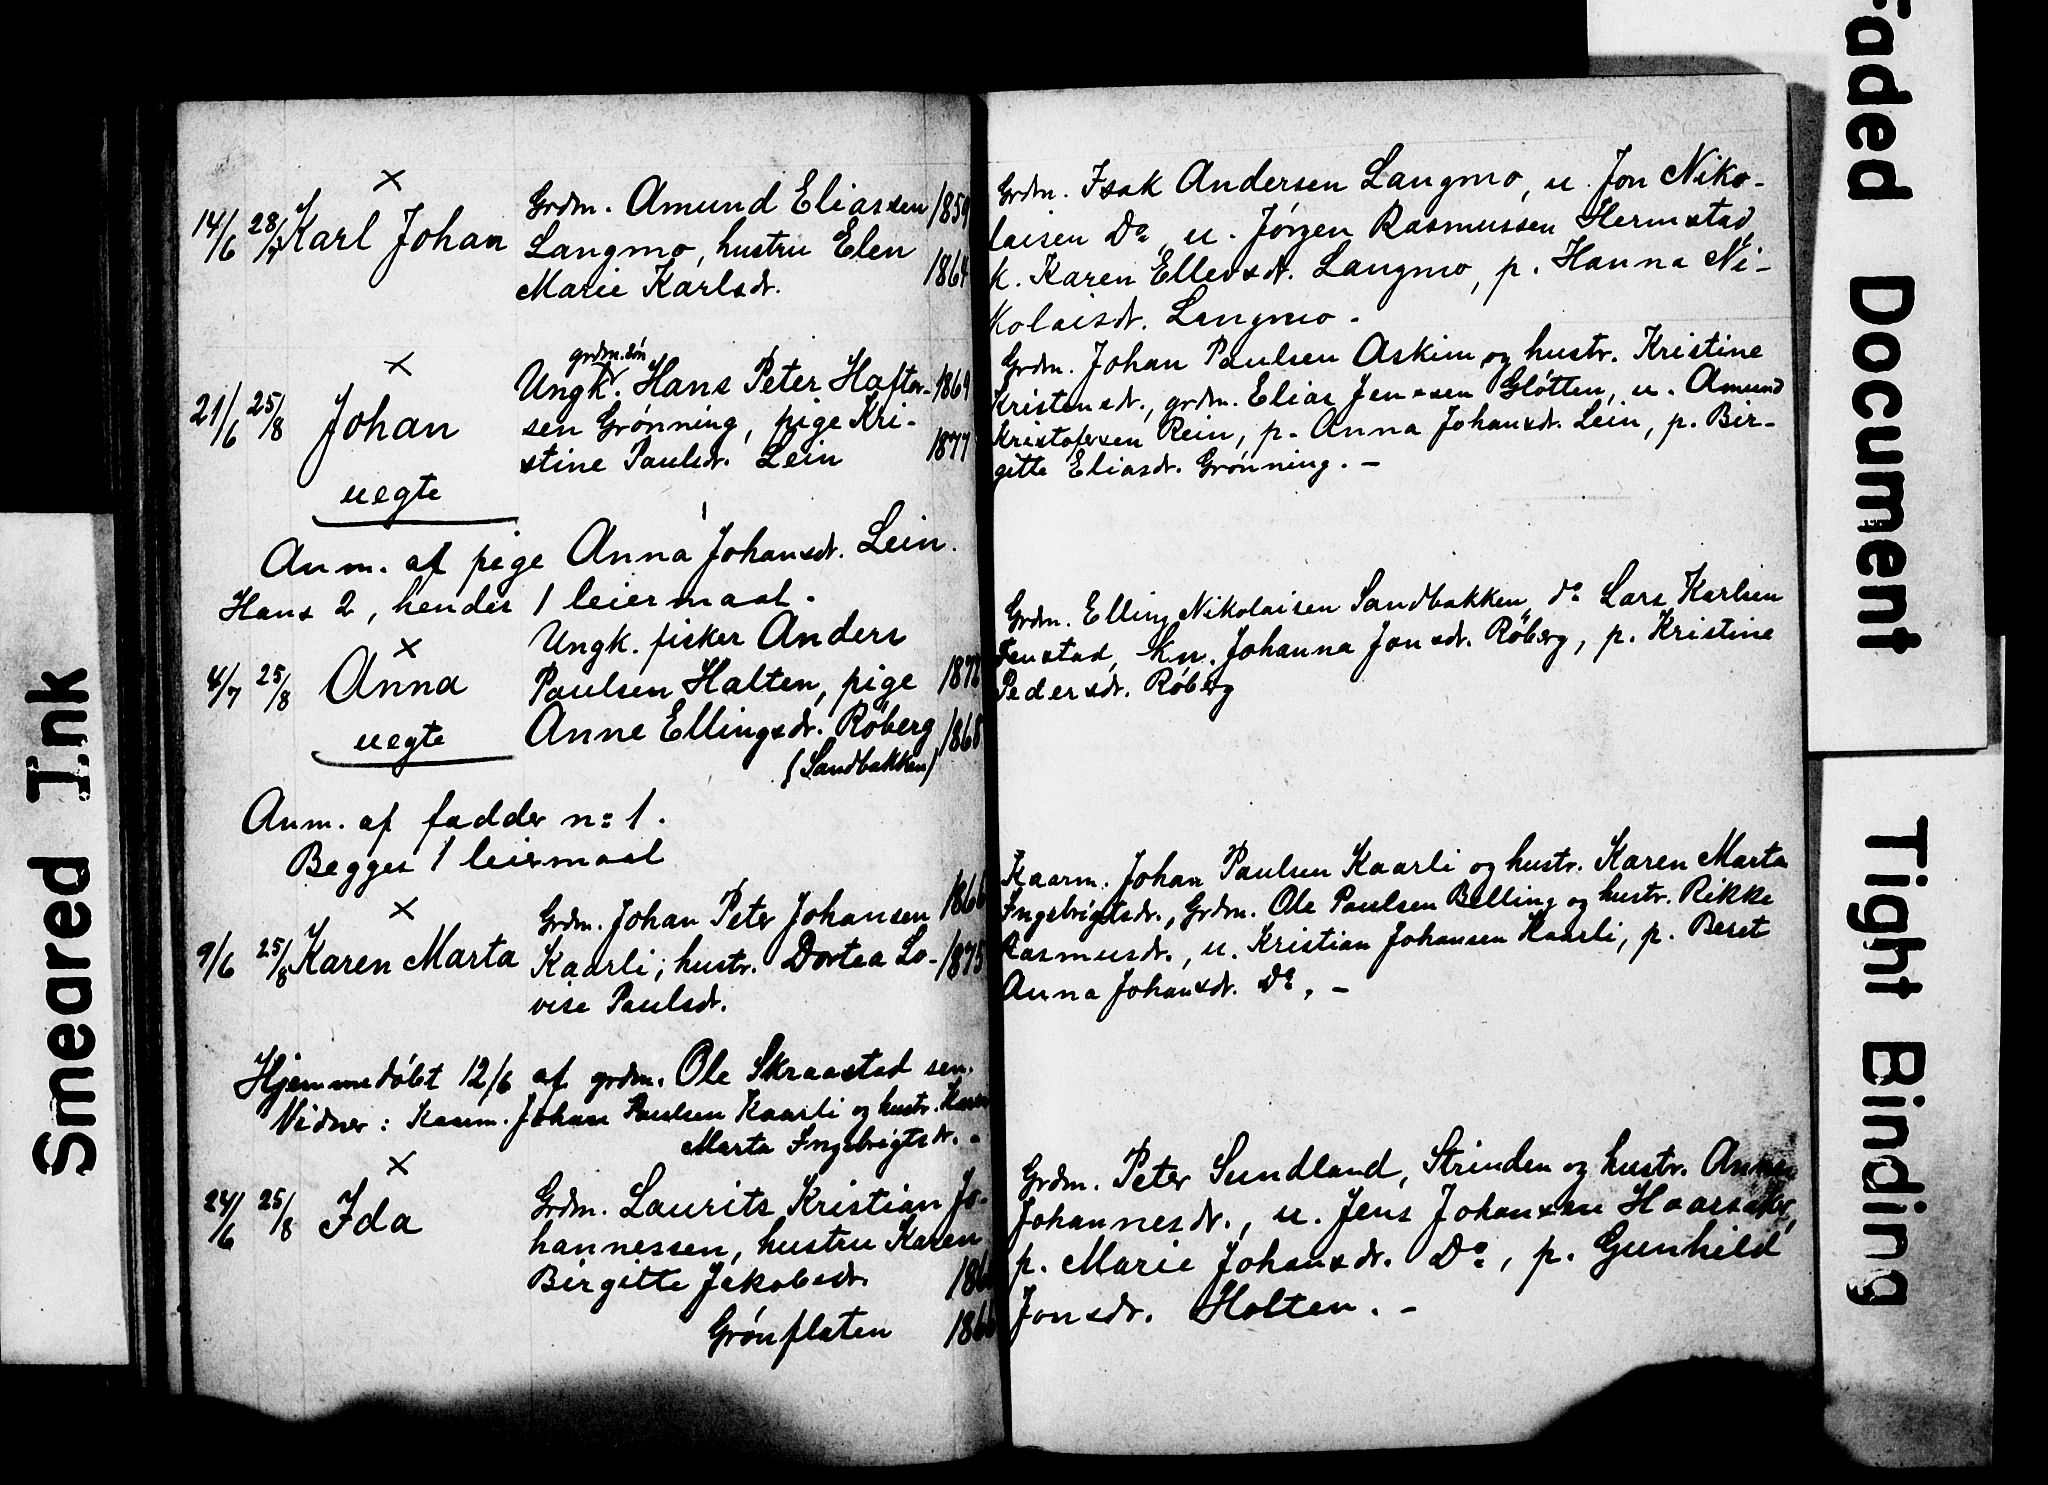 ×
14/6 28/7 Karl Johan
Grdm. Amund Eliassen 1859
Langmo, hustru Elen
Marie Karlsdr. 1864
×
grdm.søn
Ungk. Hans Peter Hafter- 1869
21/6 25/8 Johan
sen Grønning, pige Kri-
stine Paulsdr. Lein 1877
uegte
Anm. af pige Anna Johansdr. Lein.
Hans 2, hendes 1 leiermaal.
×
Ungk. fisker Anders
4/7 25/8 Anna
Paulsen Halten, pige 1872
Anne Ellingsdr. Røberg 1868
uegte
(Sandbakken)
Anm. af fadder no 1.
Begges 1 leiermaal
×
Grdm. Johan Peter Johansen 1866
9/6 25/8 Karen Marta
Kaarli; hustr. Dortea Lo- 1875
vise Paulsdr.
Hjemmedøbt 12/6 af grdm. Ole Skraastad sen.
Vidner: Kaarm. Johan Paulsen Kaarli og hustr. Karen
Marta Ingebrigtsdr. -
×
24/6 25/8 Ida
Grdm. Laurits Kristian Jo-
hannessen, hustru Karen
Birgitte Jakobsdr.
Grønflaten 1866
Grdm. Isak Andersen Langmo, u. Jon Niko-
laisen Do, u. Jørgen Rasmussen Hermstad,
k. Karen Ellevsdr. Langmo, p. Hanna Ni-
kolaisdr. Langmo.
Grdm. Johan Paulsen Askim og hustr. Kristine
Kristensdr., grdm. Elias Jensen Gløtten, u. Amund
Kristofersen Rein, p. Anna Johansdr. Lein, p. Bir-
gitte Eliasdr. Grønning. -
Grdm. Elling Nikolaisen Sandbakken, do Lars Karlsen
Fenstad, kn. Johanna Jonsdr. Røberg, p. Kristine
Pedersdr. Røberg
Kaarm. Johan Paulsen Kaarli og hustr. Karen Marta
Ingebrigtsdr., Grdm. Ole Paulsen Belling og hustr. Rikke
Rasmusdr., u. Kristian Johansen Kaarli, p. Beret
Anna Johansdr. Do. -
Grdm. Peter Sundland, Strinden og hustr. Anna
Johannesdr., u. Jens Johansen Haarsaker,
p. Marie Johansdr. Do, p. Gunhild
Jonsdr. Holten. -
Smeared Ink
Faded Document
Tight Binding